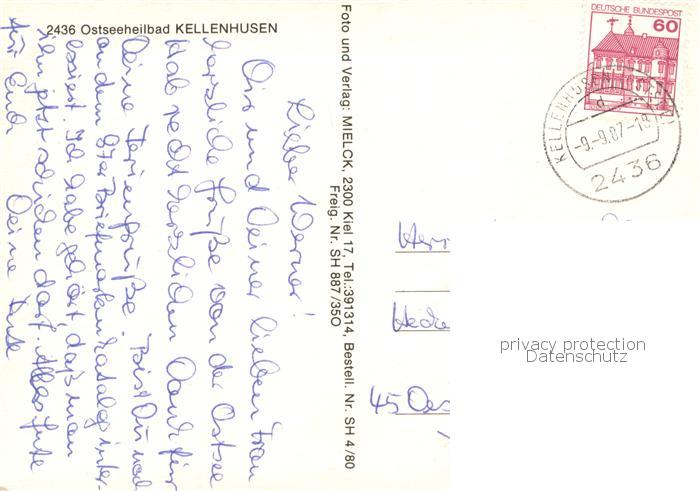 2436 Ostseeheilbad KELLENHUSEN
Lieber Werner!
Dir und Deiner lieben Frau
herzliche Grüße von der Ostsee
Hab recht herzlichen Dank für
Deine Feriengrüße. Bist Du noch
an dem Briefmarkenkatalog inter-
essiert. Ich habe gehört daß man
ihn jetzt schicken darf. Alles Gute
für Euch Deine
Foto und Verlag: MIELCK, 2300 Kiel 17, Tel.:391314, Bestell. Nr. SH 4/80
Freig. Nr. SH 887/350
DEUTSCHE BUNDESPOST
60
KELLENHUSEN
d
-9.-9.87-18
2436
Herr
45
privacy protection
Datenschutz